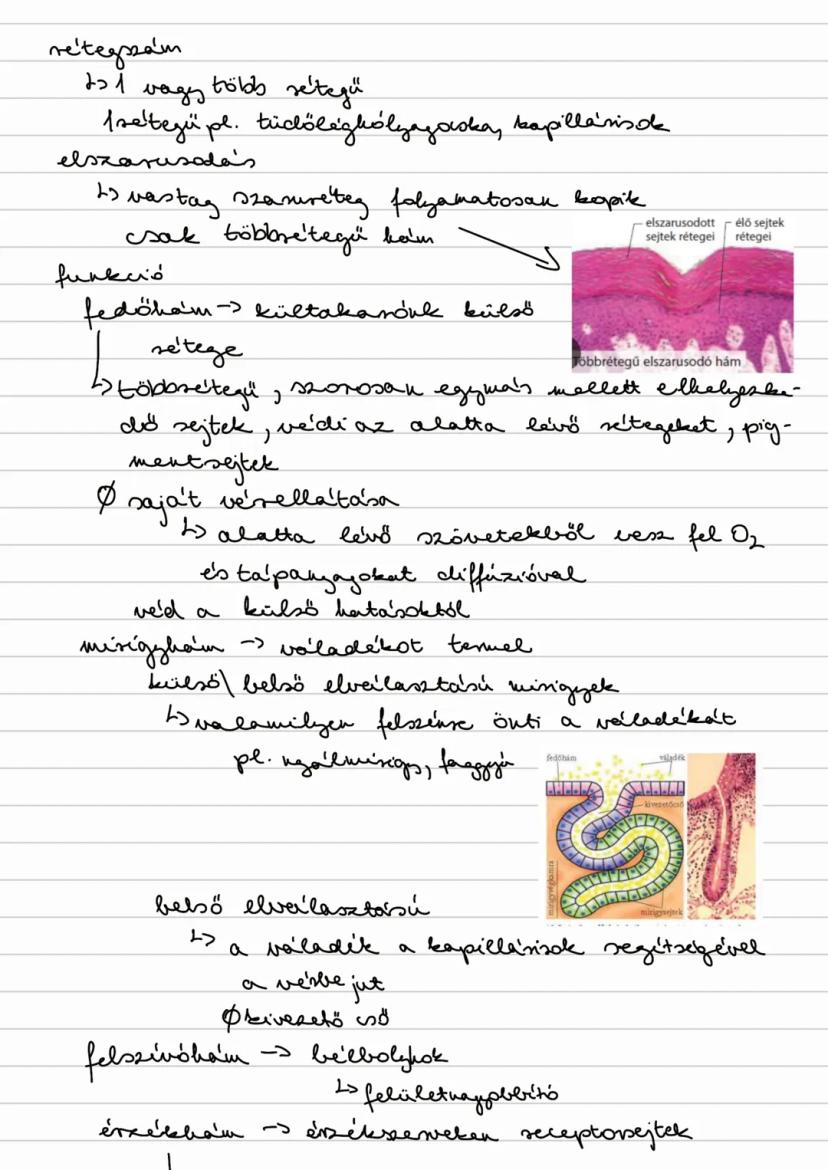 rétegszám
↳ 1 vagy több rétegű
1 rétegű pl. tüdőléghólyagocska, kapillárisok
elszarusodás
↳ vastag szaruréteg folyamatosan kopik
csak többrétegű hám
elszarusodott sejtek rétegei
élő sejtek rétegei
Többrétegű elszarusodó hám
funkció
fedőhám → kültakarónk külső
rétege
↳ többrétegű, szorosan egymás mellett elhelyezke-
dő sejtek, védi az alatta lévő rétegeket, pig-
mentsejtek
Ø saját vérellátása
↳ alatta lévő szövetekből vesz fel O₂
és tápanyagokat diffúzióval
véd a külső hatásoktól
mirigyhám → váladékot termel
külső\ belső elválasztású mirigyek
↳ valamilyen felszínre önti a váladékát
pl. nyálmirigy, faggyú
fedőhám
váladék
kivezetőcső
mirigyvégkamra
mirigysejtek
belső elválasztású
↳ a váladék a kapillárisok segítségével
a vérbe jut
Ø kivezető cső
felszívóhám → bélbolyhok
↳ felületnagyobbító
érzékhám → érzékszerveken receptorsejtek